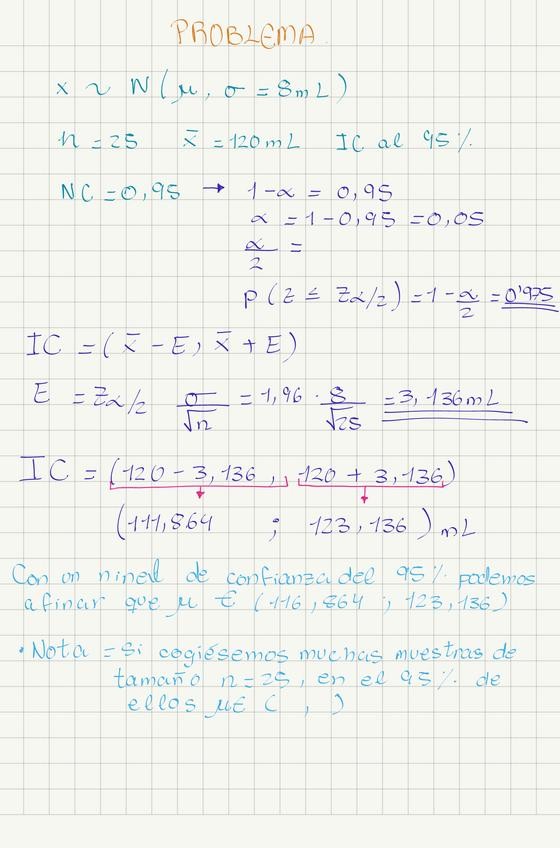 PROBLEMA
x ~ N(μ, σ = 8mL)
n = 25 x̄ = 120mL IC al 95%
NC = 0,95 → 1-α = 0,95
α = 1-0,95 = 0,05
α/2 =
p(z ≤ zα/2) = 1-α/2 = 0'975
IC = (x̄ - E, x̄ + E)
E = zα/2 σ/√n = 1,96 · 8/√25 = 3,136mL
IC = (120 - 3,136, 120 + 3,136)
(111,864 ; 123,136) mL
Con un nivel de confianza del 95% podemos
afinar que μ € (116,864 ; 123,136)
• Nota = si cogiésemos muchas muestras de
tamaño n = 25, en el 95% de
ellos μ€ ( , )